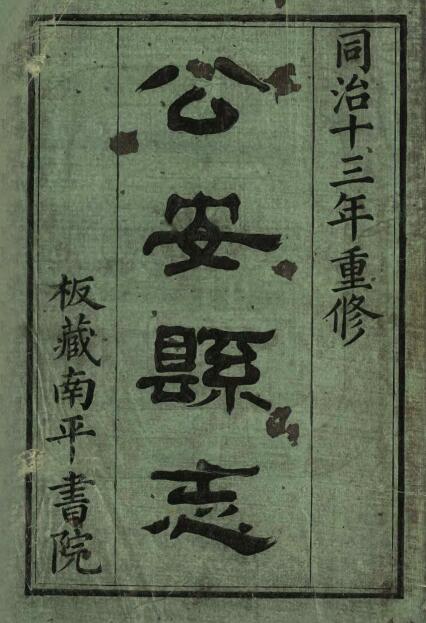 同治十三年重修
公安縣志
板藏南平書院